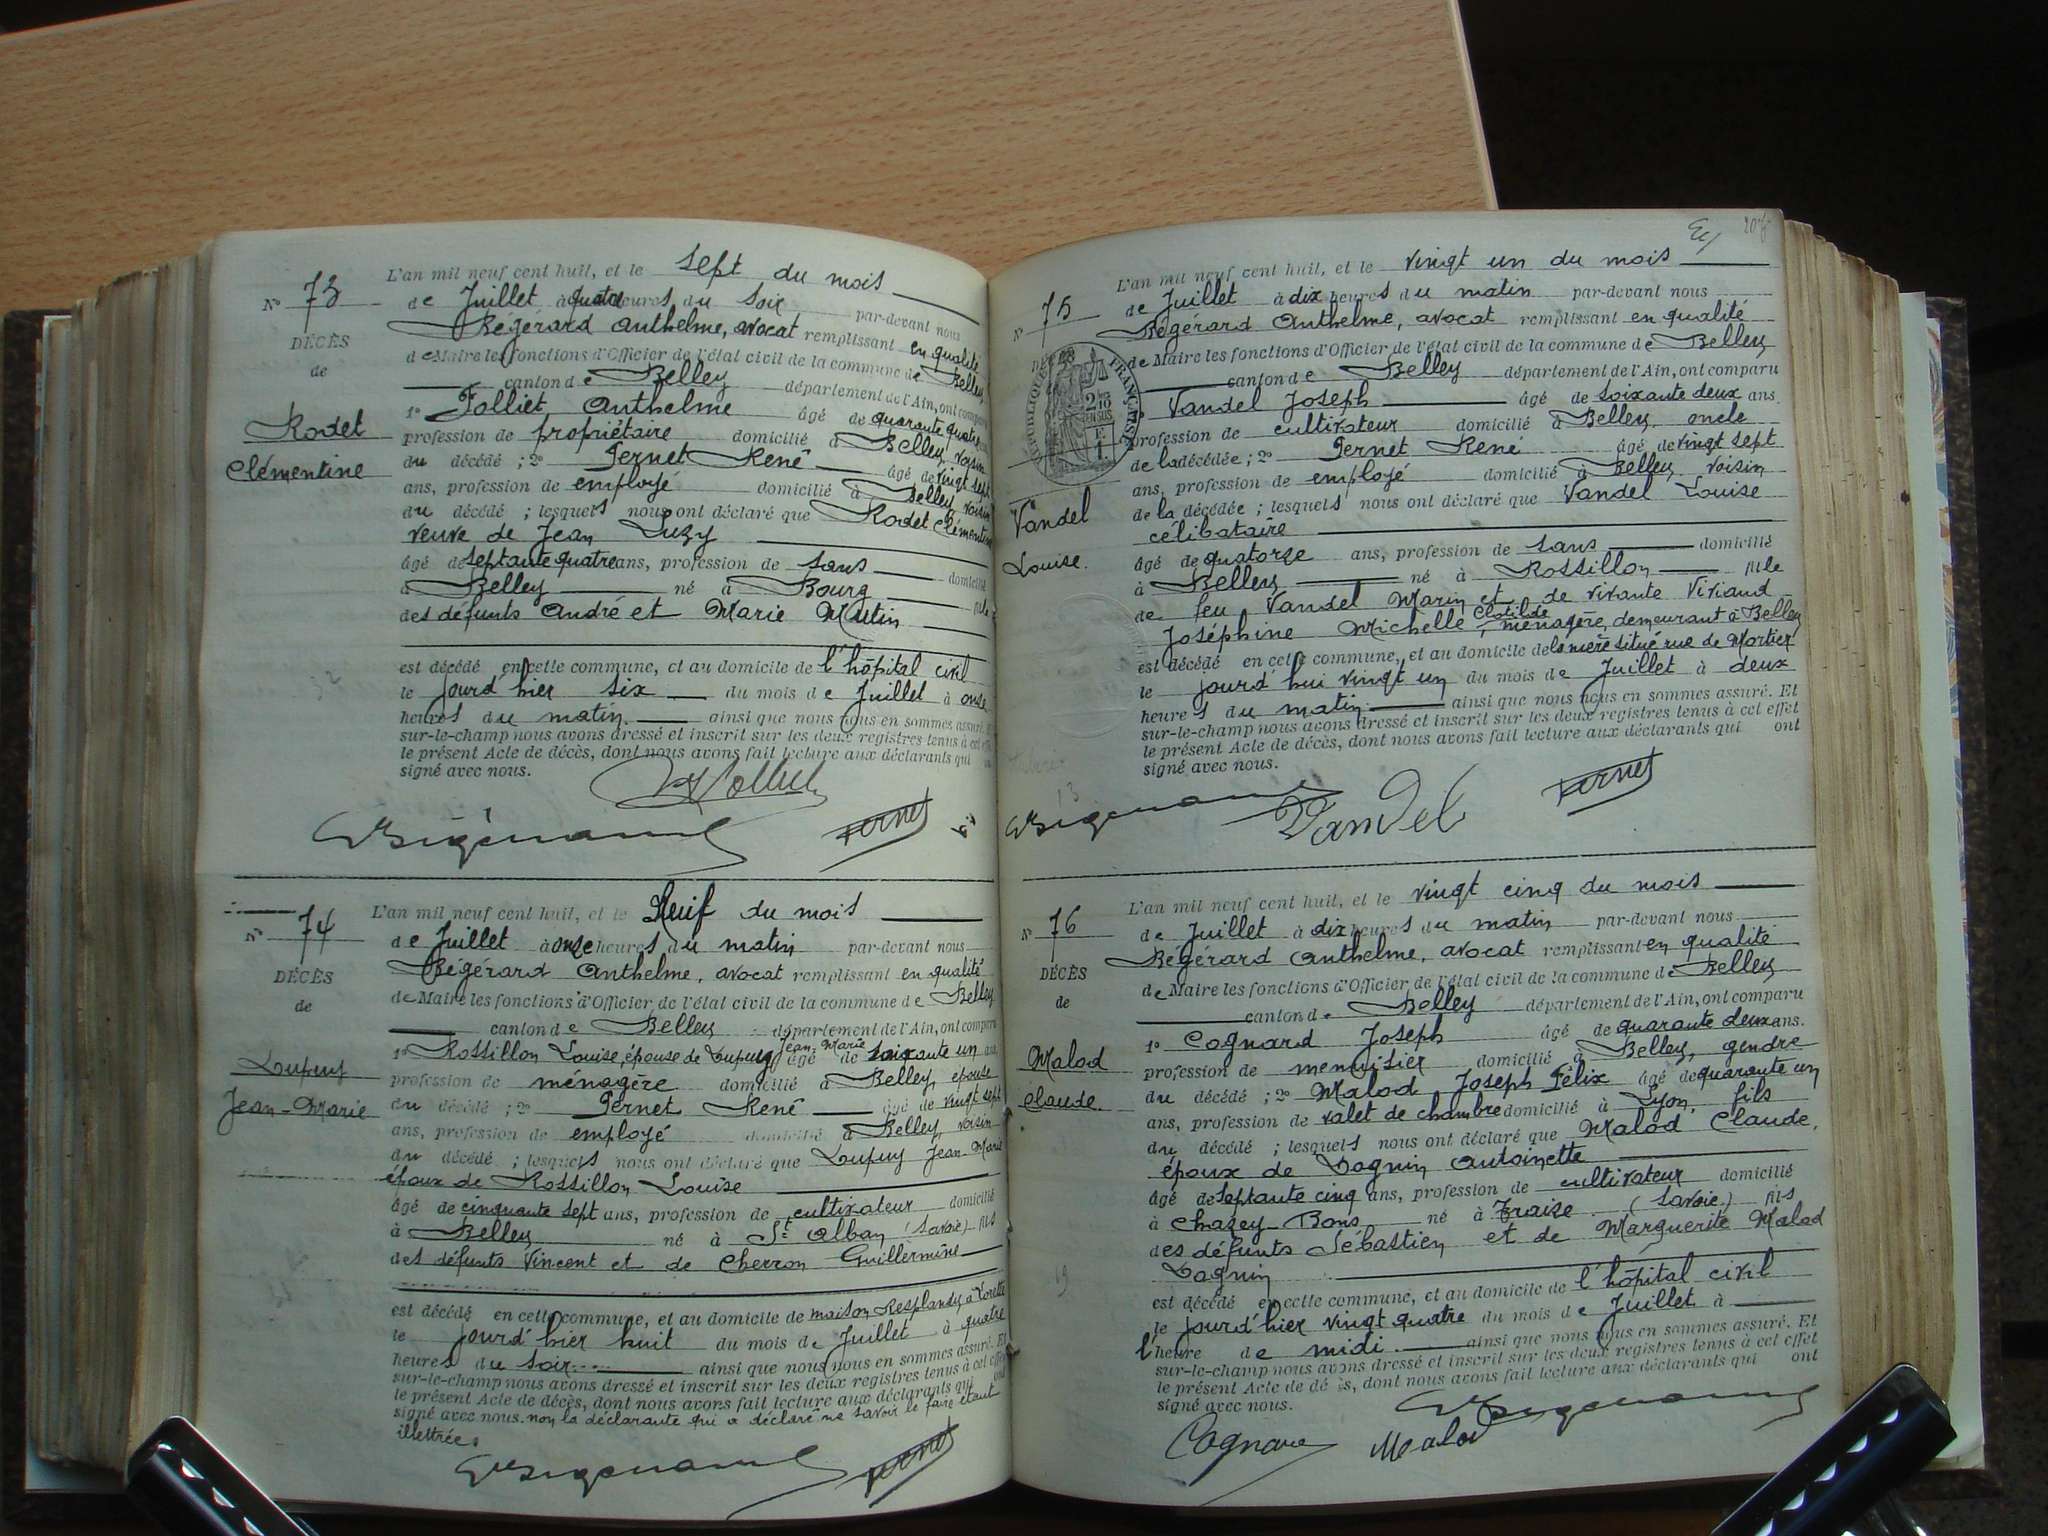 N° 73
DÉCÈS
de
Rodet
Clémentine
L'an mil neuf cent huit, et le sept du mois
de Juillet à quatre heures du soir par-devant nous
Bégérard Anthelme, avocat remplissant en qualité
de Maire les fonctions d'Officier de l'état civil de la commune de Belley
canton de Belley département de l'Ain, ont comparu
1° Folliet Anthelme âgé de quarante quatre
profession de propriétaire domicilié à Belley, voisin
du décédé ; 2° Pernet René âgé de vingt sept
ans, profession de employé domicilié à Belley, voisin
du décédé ; lesquels nous ont déclaré que Rodet Clémentine
veuve de Jean Luzy
âgé de septante quatre ans, profession de sans domicilié
à Belley né à Bourg fille
des défunts André et Marie Mutin
est décédé en cette commune, et au domicile de l'hôpital civil
le jourd'hier six du mois de Juillet à onze
heures du matin ainsi que nous nous en sommes assuré. Et
sur-le-champ nous avons dressé et inscrit sur les deux registres tenus à cet effet
le présent Acte de décès, dont nous avons fait lecture aux déclarants qui
signé avec nous.
Pernet
N° 74
DÉCÈS
de
Dupuy
Jean-Marie
L'an mil neuf cent huit, et le Neuf du mois
de Juillet à onze heures du matin par-devant nous
Bégérard Anthelme, avocat remplissant en qualité
de Maire les fonctions d'Officier de l'état civil de la commune de Belley
canton de Belley département de l'Ain, ont comparu
1° Rossillon Louise, épouse de Dupuy Jean-Marie âgé de soixante un ans,
profession de ménagère domicilié à Belley, épouse
du décédé ; 2° Pernet René âgé de vingt sept
ans, profession de employé domicilié à Belley, voisin
du décédé ; lesquels nous ont déclaré que Dupuy Jean-Marie
époux de Rossillon Louise
âgé de cinquante sept ans, profession de cultivateur domicilié
à Belley né à St Alban (Savoie) fils
des défunts Vincent et de Cherron Guillermine
est décédé en cette commune, et au domicile de maison Resplandy à
le jourd'hier huit du mois de Juillet à quatre
heures du soir ainsi que nous nous en sommes assuré. Et
sur-le-champ nous avons dressé et inscrit sur les deux registres tenus à cet effet
le présent Acte de décès, dont nous avons fait lecture aux déclarants qui ont
signé avec nous. non la déclarante qui a déclaré ne savoir le faire étant
illettrée
Pernet
N° 75
DÉCÈS
RÉPUBLIQUE FRANÇAISE
Vandel
Louise.
L'an mil neuf cent huit, et le vingt un du mois
de Juillet à dix heures du matin par-devant nous
Bégérard Anthelme, avocat remplissant en qualité
de Maire les fonctions d'Officier de l'état civil de la commune de Belley
canton de Belley département de l'Ain, ont comparu
Vandel Joseph âgé de soixante deux ans
profession de cultivateur domicilié à Belley, oncle
de la décédée ; 2° Pernet René âgé de vingt sept
ans, profession de employé domicilié à Belley, voisin
de la décédée ; lesquels nous ont déclaré que Vandel Louise
célibataire
âgé de quatorze ans, profession de sans domicilié
à Belley né à Rossillon fille
de feu Vandel Marin et de vivante Viviand
Joséphine Michelle Clotilde, ménagère, demeurant à Belley
est décédé en cette commune, et au domicile de la mère situé rue de Mortier
le jourd'hui vingt un du mois de Juillet à deux
heures du matin ainsi que nous nous en sommes assuré. Et
sur-le-champ nous avons dressé et inscrit sur les deux registres tenus à cet effet
le présent Acte de décès, dont nous avons fait lecture aux déclarants qui ont
signé avec nous.
Vandel Pernet
N° 76
DÉCÈS
de
Malod
Claude.
L'an mil neuf cent huit, et le vingt cinq du mois
de Juillet à dix heures du matin par-devant nous
Bégérard Anthelme, avocat remplissant en qualité
de Maire les fonctions d'Officier de l'état civil de la commune de Belley
canton de Belley département de l'Ain, ont comparu
1° Cognard Joseph âgé de quarante deux ans.
profession de menuisier domicilié à Belley, gendre
du décédé ; 2° Malod Joseph Félix âgé de quarante un
ans, profession de valet de chambre domicilié à Lyon, fils
du décédé ; lesquels nous ont déclaré que Malod Claude,
époux de Dagnin Antoinette
âgé de septante cinq ans, profession de cultivateur domicilié
à Chazey-Bons né à Traize (Savoie) fils
des défunts Sébastien et de Marguerite Malod
Dagnin
est décédé en cette commune, et au domicile de l'hôpital civil
le jourd'hier vingt quatre du mois de Juillet à
l'heure de midi ainsi que nous nous en sommes assuré. Et
sur-le-champ nous avons dressé et inscrit sur les deux registres tenus à cet effet
le présent Acte de décès, dont nous avons fait lecture aux déclarants qui ont
signé avec nous.
Cognard Malod